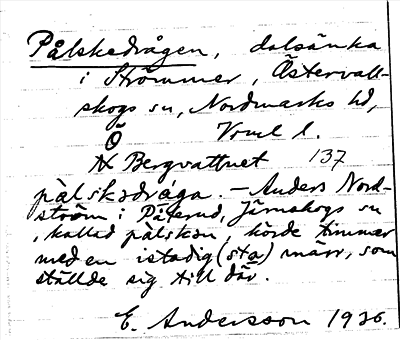 Pålskedrågen, dalsänka
i Strömmer, Östervall-
skogs sn, Nordmarks hd,
Ö Vrml l.
N Bergvattnet 137
pålskədråga. – Anders Nord-
ström i Piterud, Järnskogs sn
, kallad pålskən, körde timmer
med en istadig (sta) märr, som
ställde sig till där.
E. Andersson 1936.